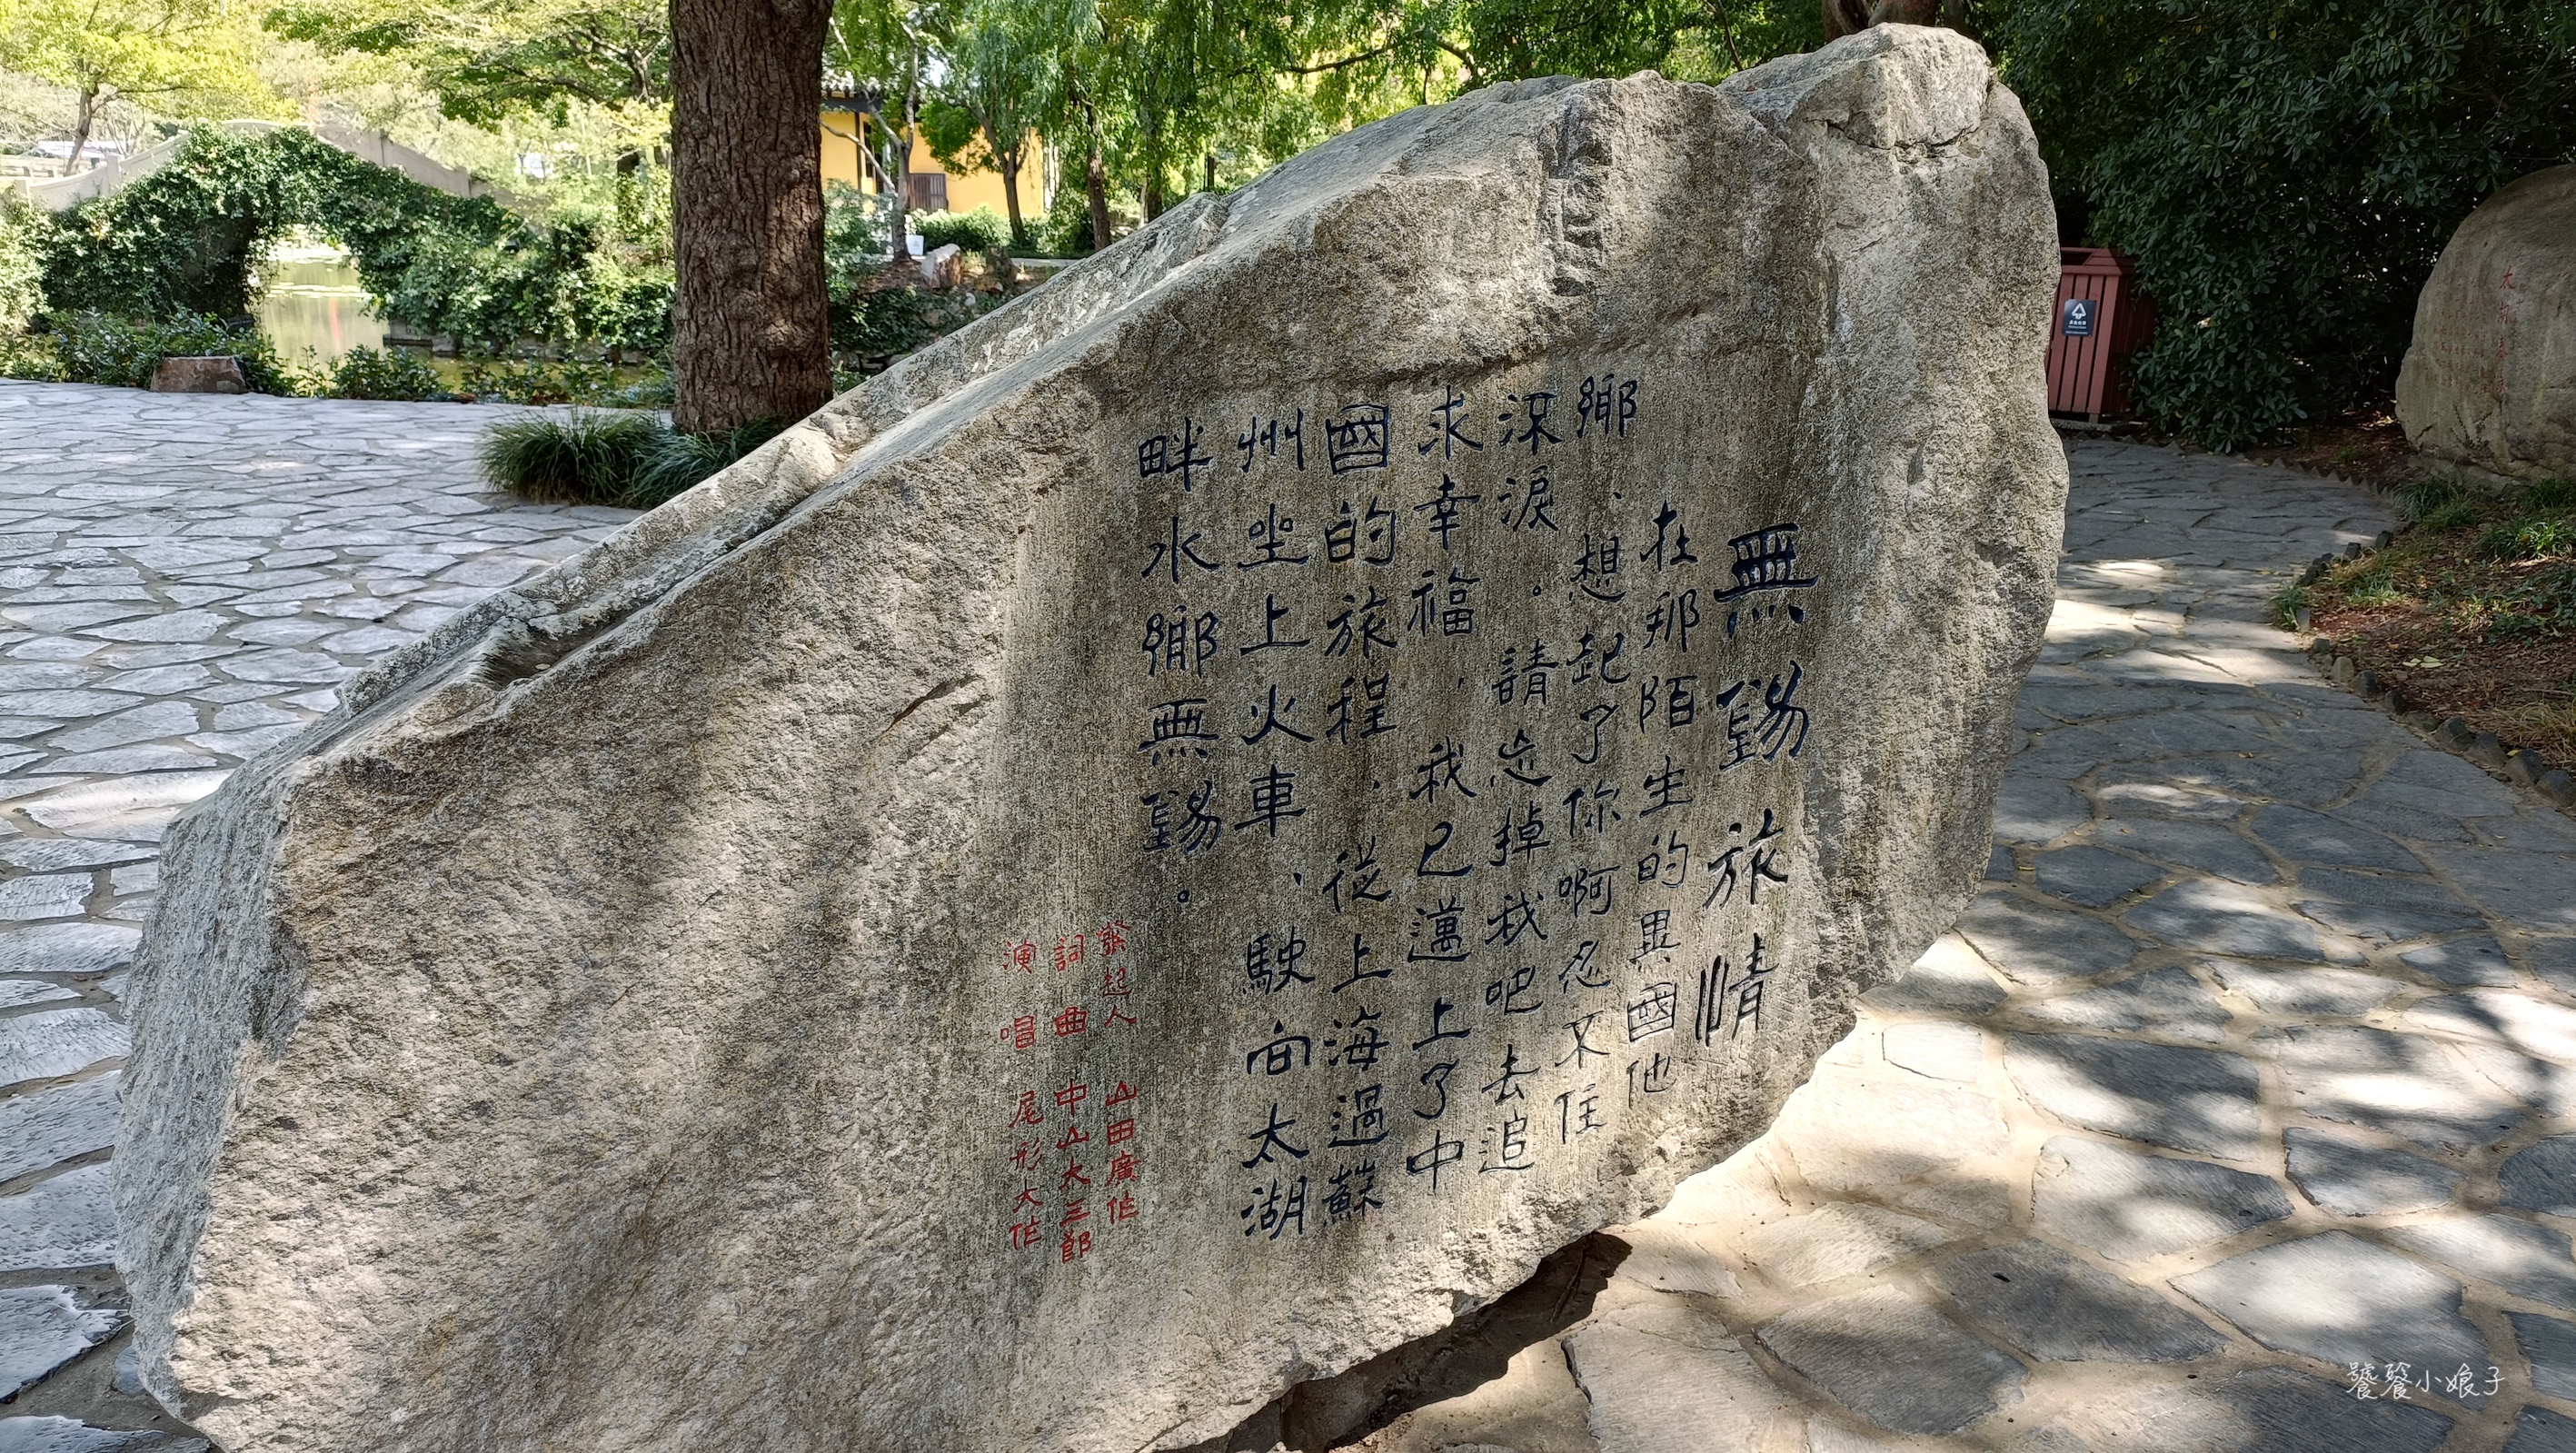 無錫旅情
在那陌生的異國他
鄉、想起了你啊忍不住
深淚。請忘掉我吧去追
求幸福，我已邁上了中
國的旅程，從上海過蘇
州坐上火車、駛向太湖
畔水鄉無錫。
發起人 山田廣作
詞曲 中山大三郎
演唱 尾形大作
饕餮小娘子